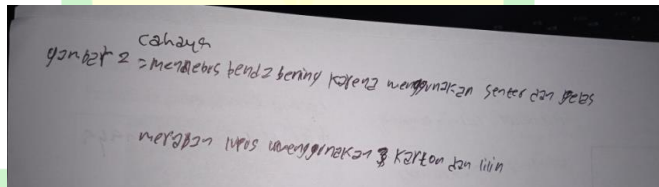 cahaya
gambar 2 = menembus benda bening karena menggunakan senter dan gelas
merapan lurus menggunakan karton dan lilin